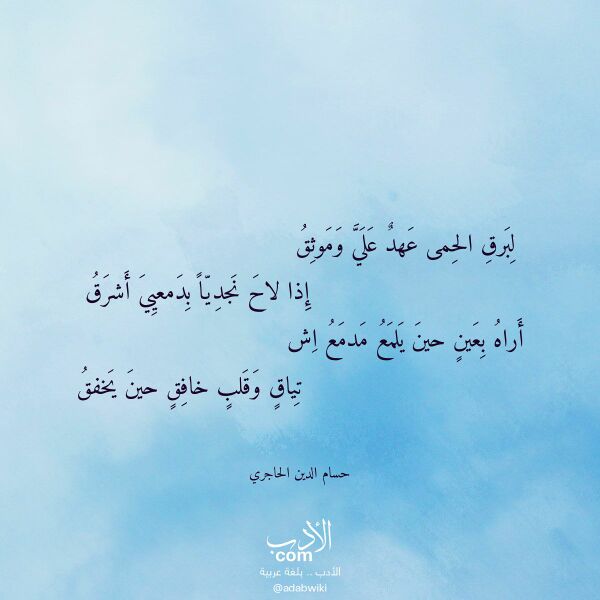 لِبَرقِ الحِمى عَهدٌ عَلَيَّ وَمَوثِقُ
إِذا لاحَ نَجدِيّاً بِدَمعِيِيَ أَشرَقُ
أَراهُ بِعَينٍ حينَ يَلمَعُ مَدمَعُ اِش
تِياقٍ وَقَلبٍ خافِقٍ حينَ يَخفقُ
حسام الدين الحاجري
الأدب
com
الأدب .. بلغة عربية
@adabwiki